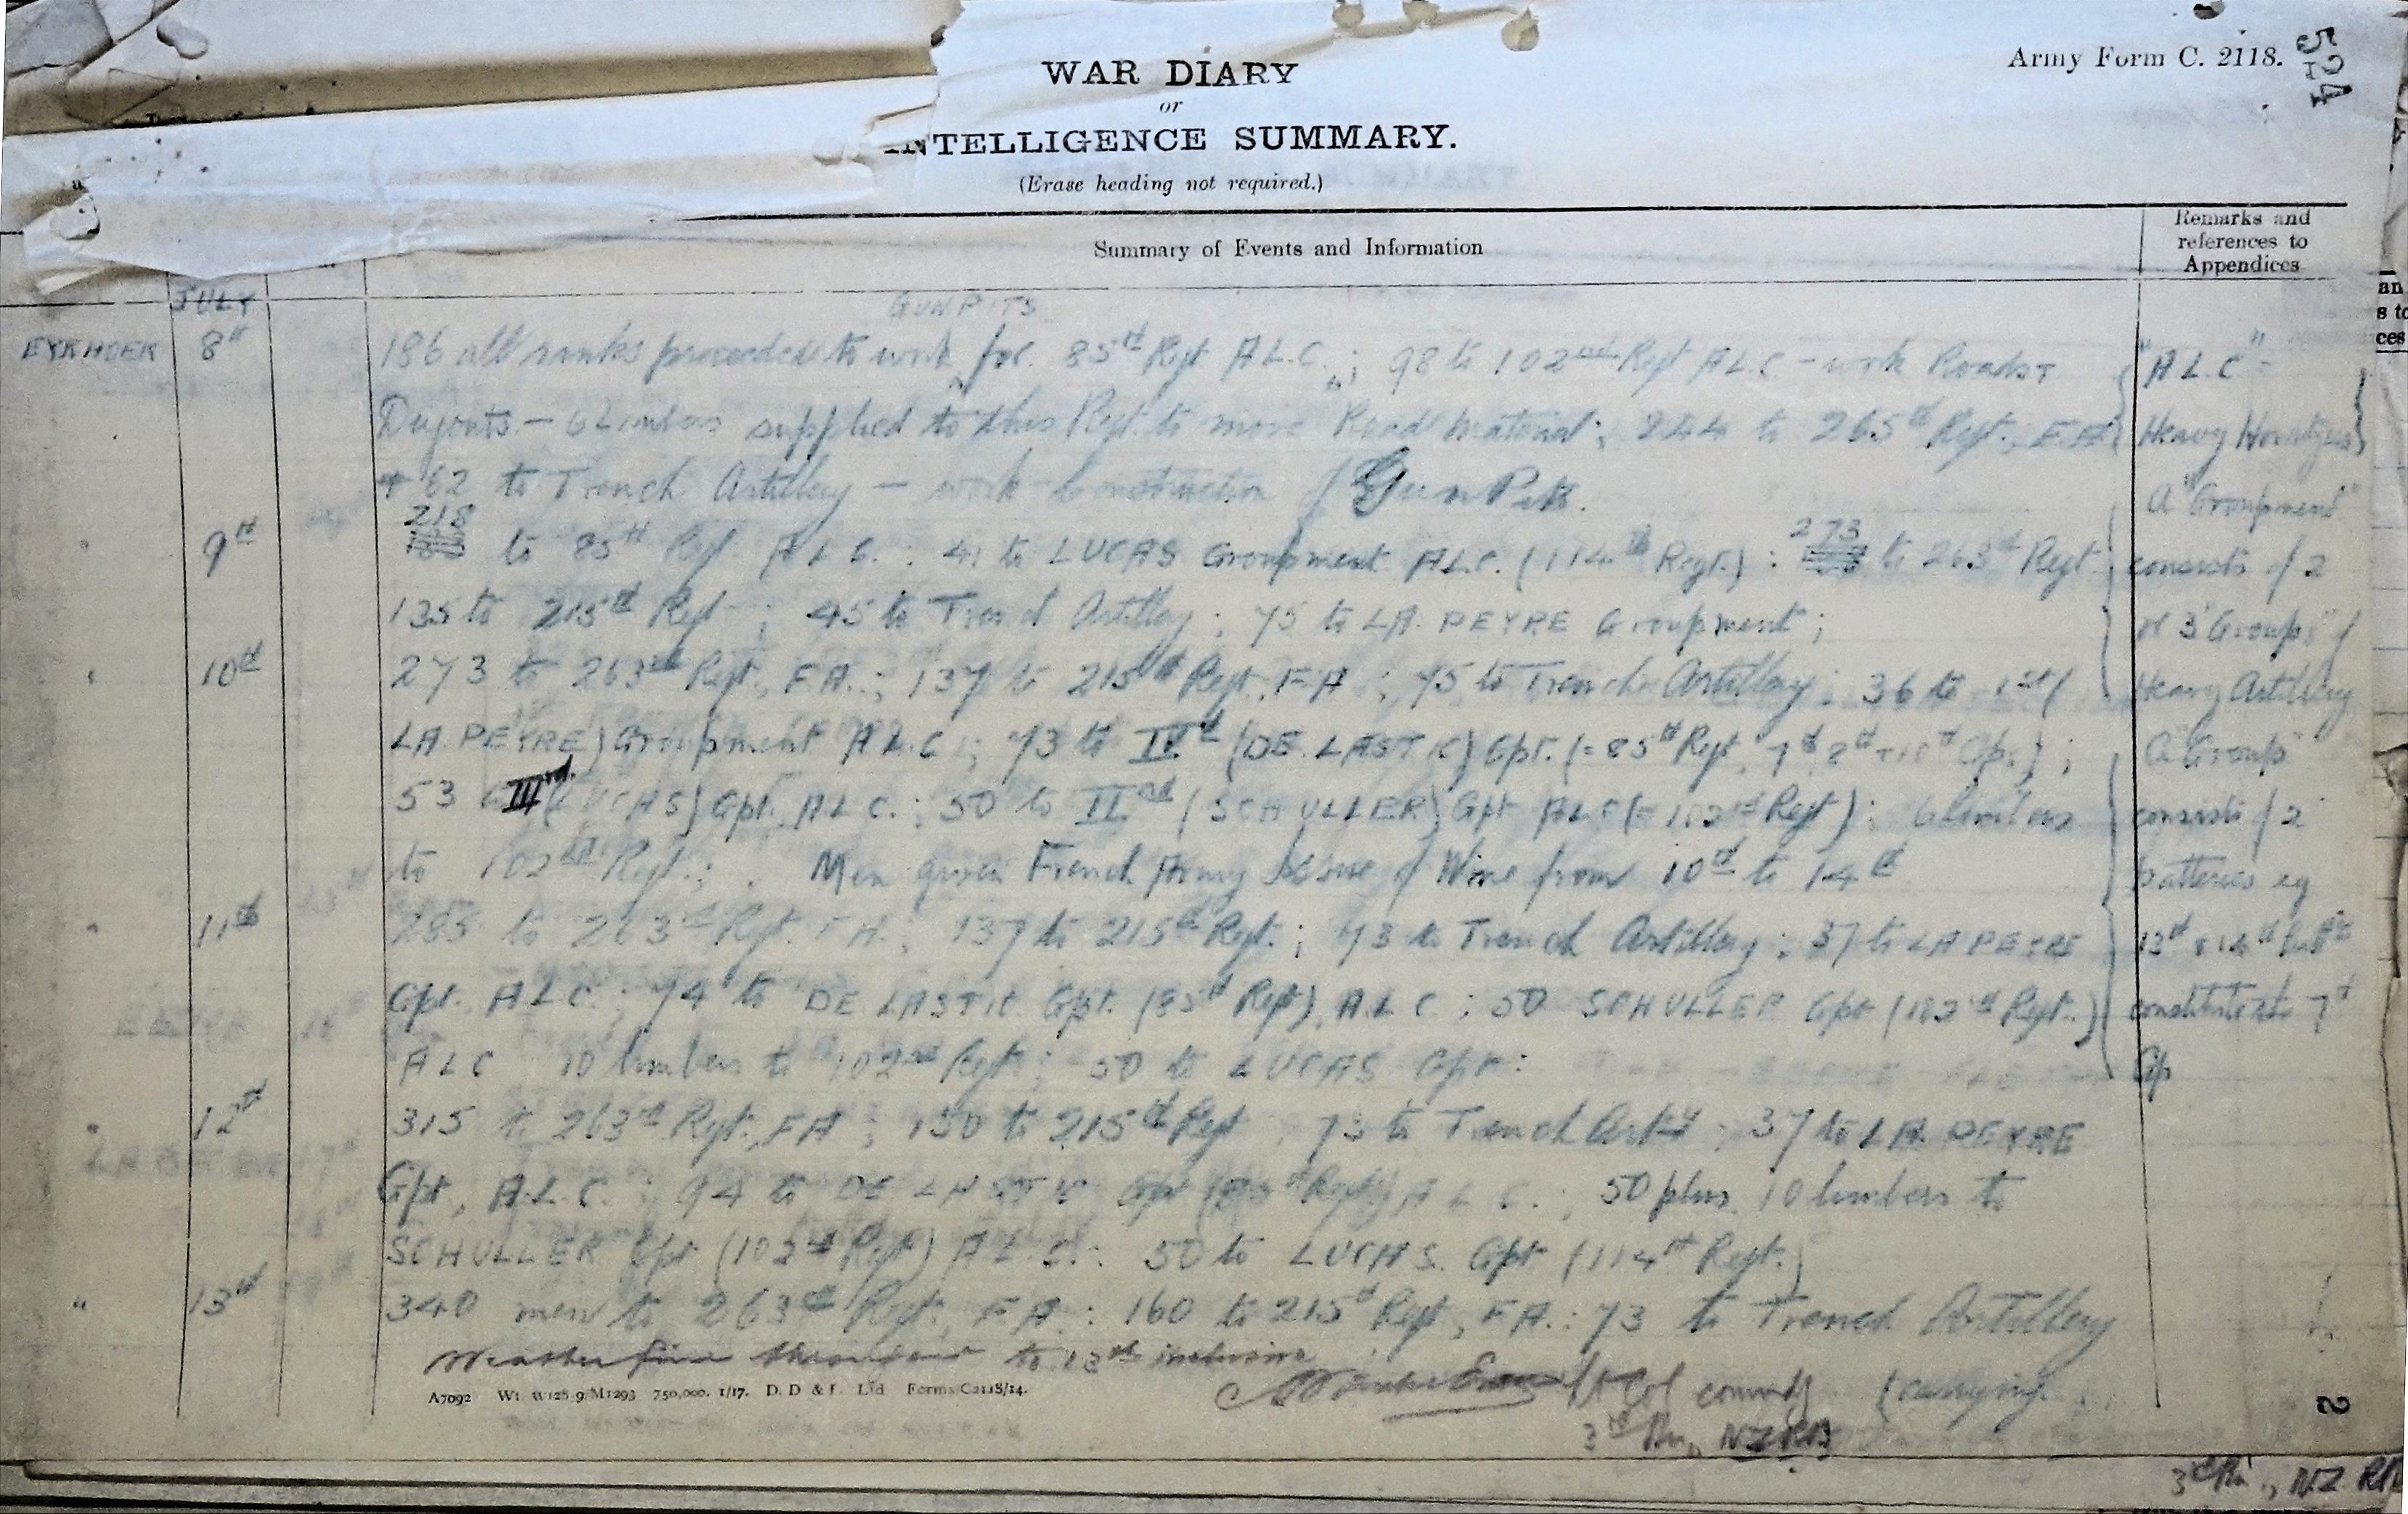 Army Form C. 2118.
504
WAR DIARY
or
INTELLIGENCE SUMMARY.
(Erase heading not required.)
Summary of Events and Information
Remarks and
references to
Appendices
JULY
GUN PITS
EYKHOEK 8th 186 all ranks proceeded to work for 85th Regt A.L.C.; 98 to 102nd Regt A.L.C - work Roads &
Dugouts - 6 Limbers supplied to this Regt. to move Road material; 244 to 265th Regt., FA
+ 62 to Trench Artillery - work - construction of Gun Pits.
" 9th 218 to 85th Regt A.L.C.: 41 to LUCAS Groupment A.L.C. (114th Regt.): 273 to 263rd Regt
135 to 215th Regt; 45 to Trench Artillery; 75 to LA PEYRE Groupment;
" 10th 273 to 263rd Regt., F.A.; 137 to 215th Regt. F.A; 75 to Trench Artillery; 36 to 1st (
LA PEYRE) Groupment A.L.C; 73 to IVth (DE LASTIC) Gpt. (= 85th Regt, 7th 8th + 10th Gps);
53 to IIIrd (LUCAS) Gpt. A.L.C.; 50 to IInd (SCHULLER) Gpt ALC (= 102nd Regt); 6 limbers
to 102nd Regt.; Men given French Army Issue of Wine from 10th to 14th
" 11th 285 to 263rd Regt. F.A.; 137 to 215th Regt.; 73 to Trench Artillery; 37 to LA PEYRE
Gpt. A.L.C.; 74 to DE LASTIC Gpt. (85th Regt) A.L.C.; 50 SCHULLER Gpt (102nd Regt.)
ALC 10 limbers to 102nd Regt; 50 to LUCAS Gpt:
" 12th 315 to 263rd Regt. FA; 150 to 215th Regt 73 to Trench Arty; 37 to LA PEYRE
Gpt, A.L.C.; 94 to DE LASTIC Gpt (85th Regt) A L C.; 50 plus 10 limbers to
SCHULLER Gpt (102nd Regt) A.L.C.: 50 to LUCAS Gpt (114th Regt.)
" 13th 340 men to 263rd Regt., F.A.: 160 to 215th Regt, F.A.: 73 to Trench Artillery
Weather fine throughout to 13th inclusive
Lt Col commdg (carrying
3rd Bn, NZRB
"ALC" =
Heavy Howitzers
A "Groupment"
consists of 2
or 3 "Groups" of
Heavy Artillery
A "Group"
consists of 2
batteries eg
13th & 14th
constitute the 7th
Gp
A7092 Wt. W128.9/M1293 750,000. 1/17. D. D & L. Ltd Forms/C2118/14.
2
3rd Bn., NZ
an
s to
ces